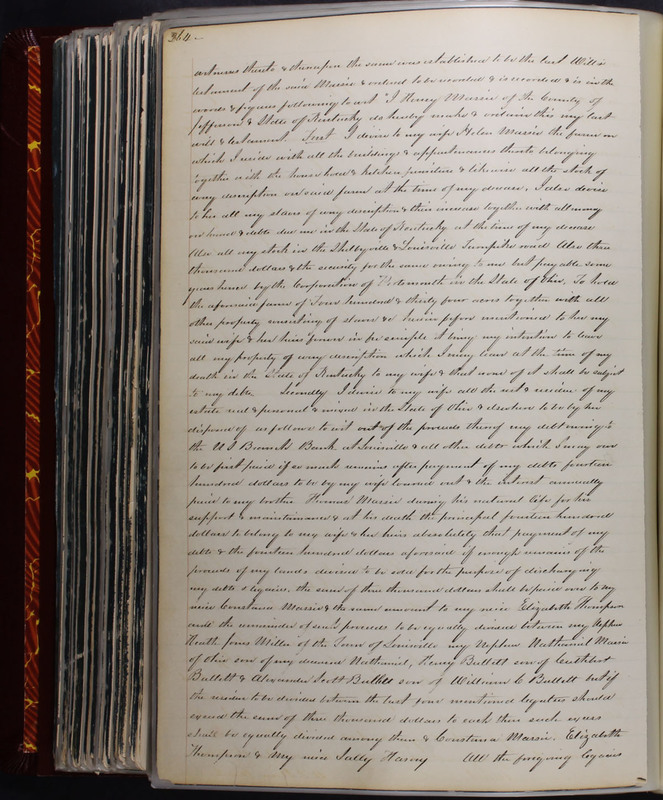 364
witness thereto & thereupon the same was established to be the last Will &
testament of the said Massie & ordered to be recorded & is recorded & is in the
words & figures following to wit "I Henry Massie of the County of
Jefferson & State of Kentucky do hereby make & ordain this my last
will & testament. First I devise to my wife Helen Massie the farm on
which I reside with all the buildings & appurtenances thereto belonging
together with the household & kitchen furniture & likewise all the stock of
every description on said farm at the time of my decease. I also devise
to her all my slaves of every description & their increase together with all money
on hand & debts due me in the State of Kentucky at the time of my decease
Also all my stock in the Shelbyville & Louisville Turnpike road Also three
thousand dollars & the security for the same owing to me but payable some
years hence by the Corporation of Portsmouth in the State of Ohio. To hold
the aforesaid farm of Four hundred & thirty four acres together with all
other property consisting of slaves &c herein before mentioned to her my
said wife & her heirs forever in fee simple it being my intention to leave
all my property of every description which I may leave at the time of my
death in the State of Kentucky to my wife & that none of it shall be subject
to my debts. Secondly I devise to my wife all the rest & residue of my
estate real & personal & mixed in the State of Ohio & elsewhere to be by her
disposed of as follows to wit out of the proceeds thereof my debt owing to
the U S Branch Bank at Louisville & all other debts which I may owe
to be first paid if so much remains after payment of my debts fourteen
hundred dollars to be by my wife loaned out & the interest annually
paid to my brother Massie during his natural life for his
support & maintainance & at his death the principal fourteen hundred
dollars to belong to my wife & her heirs absolutely that payment of my
debts & the fourteen hundred dollars aforesaid if enough remains of the
proceeds of my lands devised to be sold for the purpose of discharging
my debts & legacies, the sum of three thousand dollars shall be paid over to my
niece Constance Massie & the same amount to my niece Elizabeth Thompson
and the remainder of such proceeds to be equally divided between my nephew
Heath Jones Miller of the Town of Louisville my Nephew Nathaniel Massie
of Ohio son of my deceased Nathaniel, Henry Bullitt son of Cuthbert
Bullitt & Alexander Scott Bullitt son of William C Bullitt but if
the residue to be divided between the last four mentioned legatees should
exceed the sum of three thousand dollars to each then such excess
shall be equally divided among them & Constance Massie, Elizabeth
Thompson & my niece Sally All the foregoing legacies